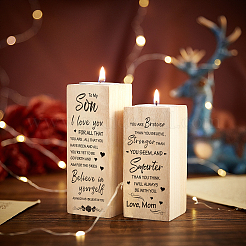 To My
Son
I love you
FOR ALL THAT
YOU ARE, ALL THAT YOU
HAVE BEEN AND ALL
YOU'RE YET TO BE
GO FORTH AND
AIM FOR THE SKIES
Believe in
yourself
YOU ARE Braver
THAN YOU BELIEVE,
Stronger THAN
YOU SEEM, AND
Smarter
THAN YOU THINK,
I WILL ALWAYS
BE WITH YOU
Love, Mom